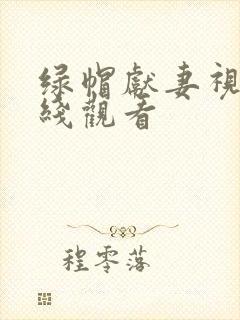 绿帽獻妻視
綫觀看
程零落